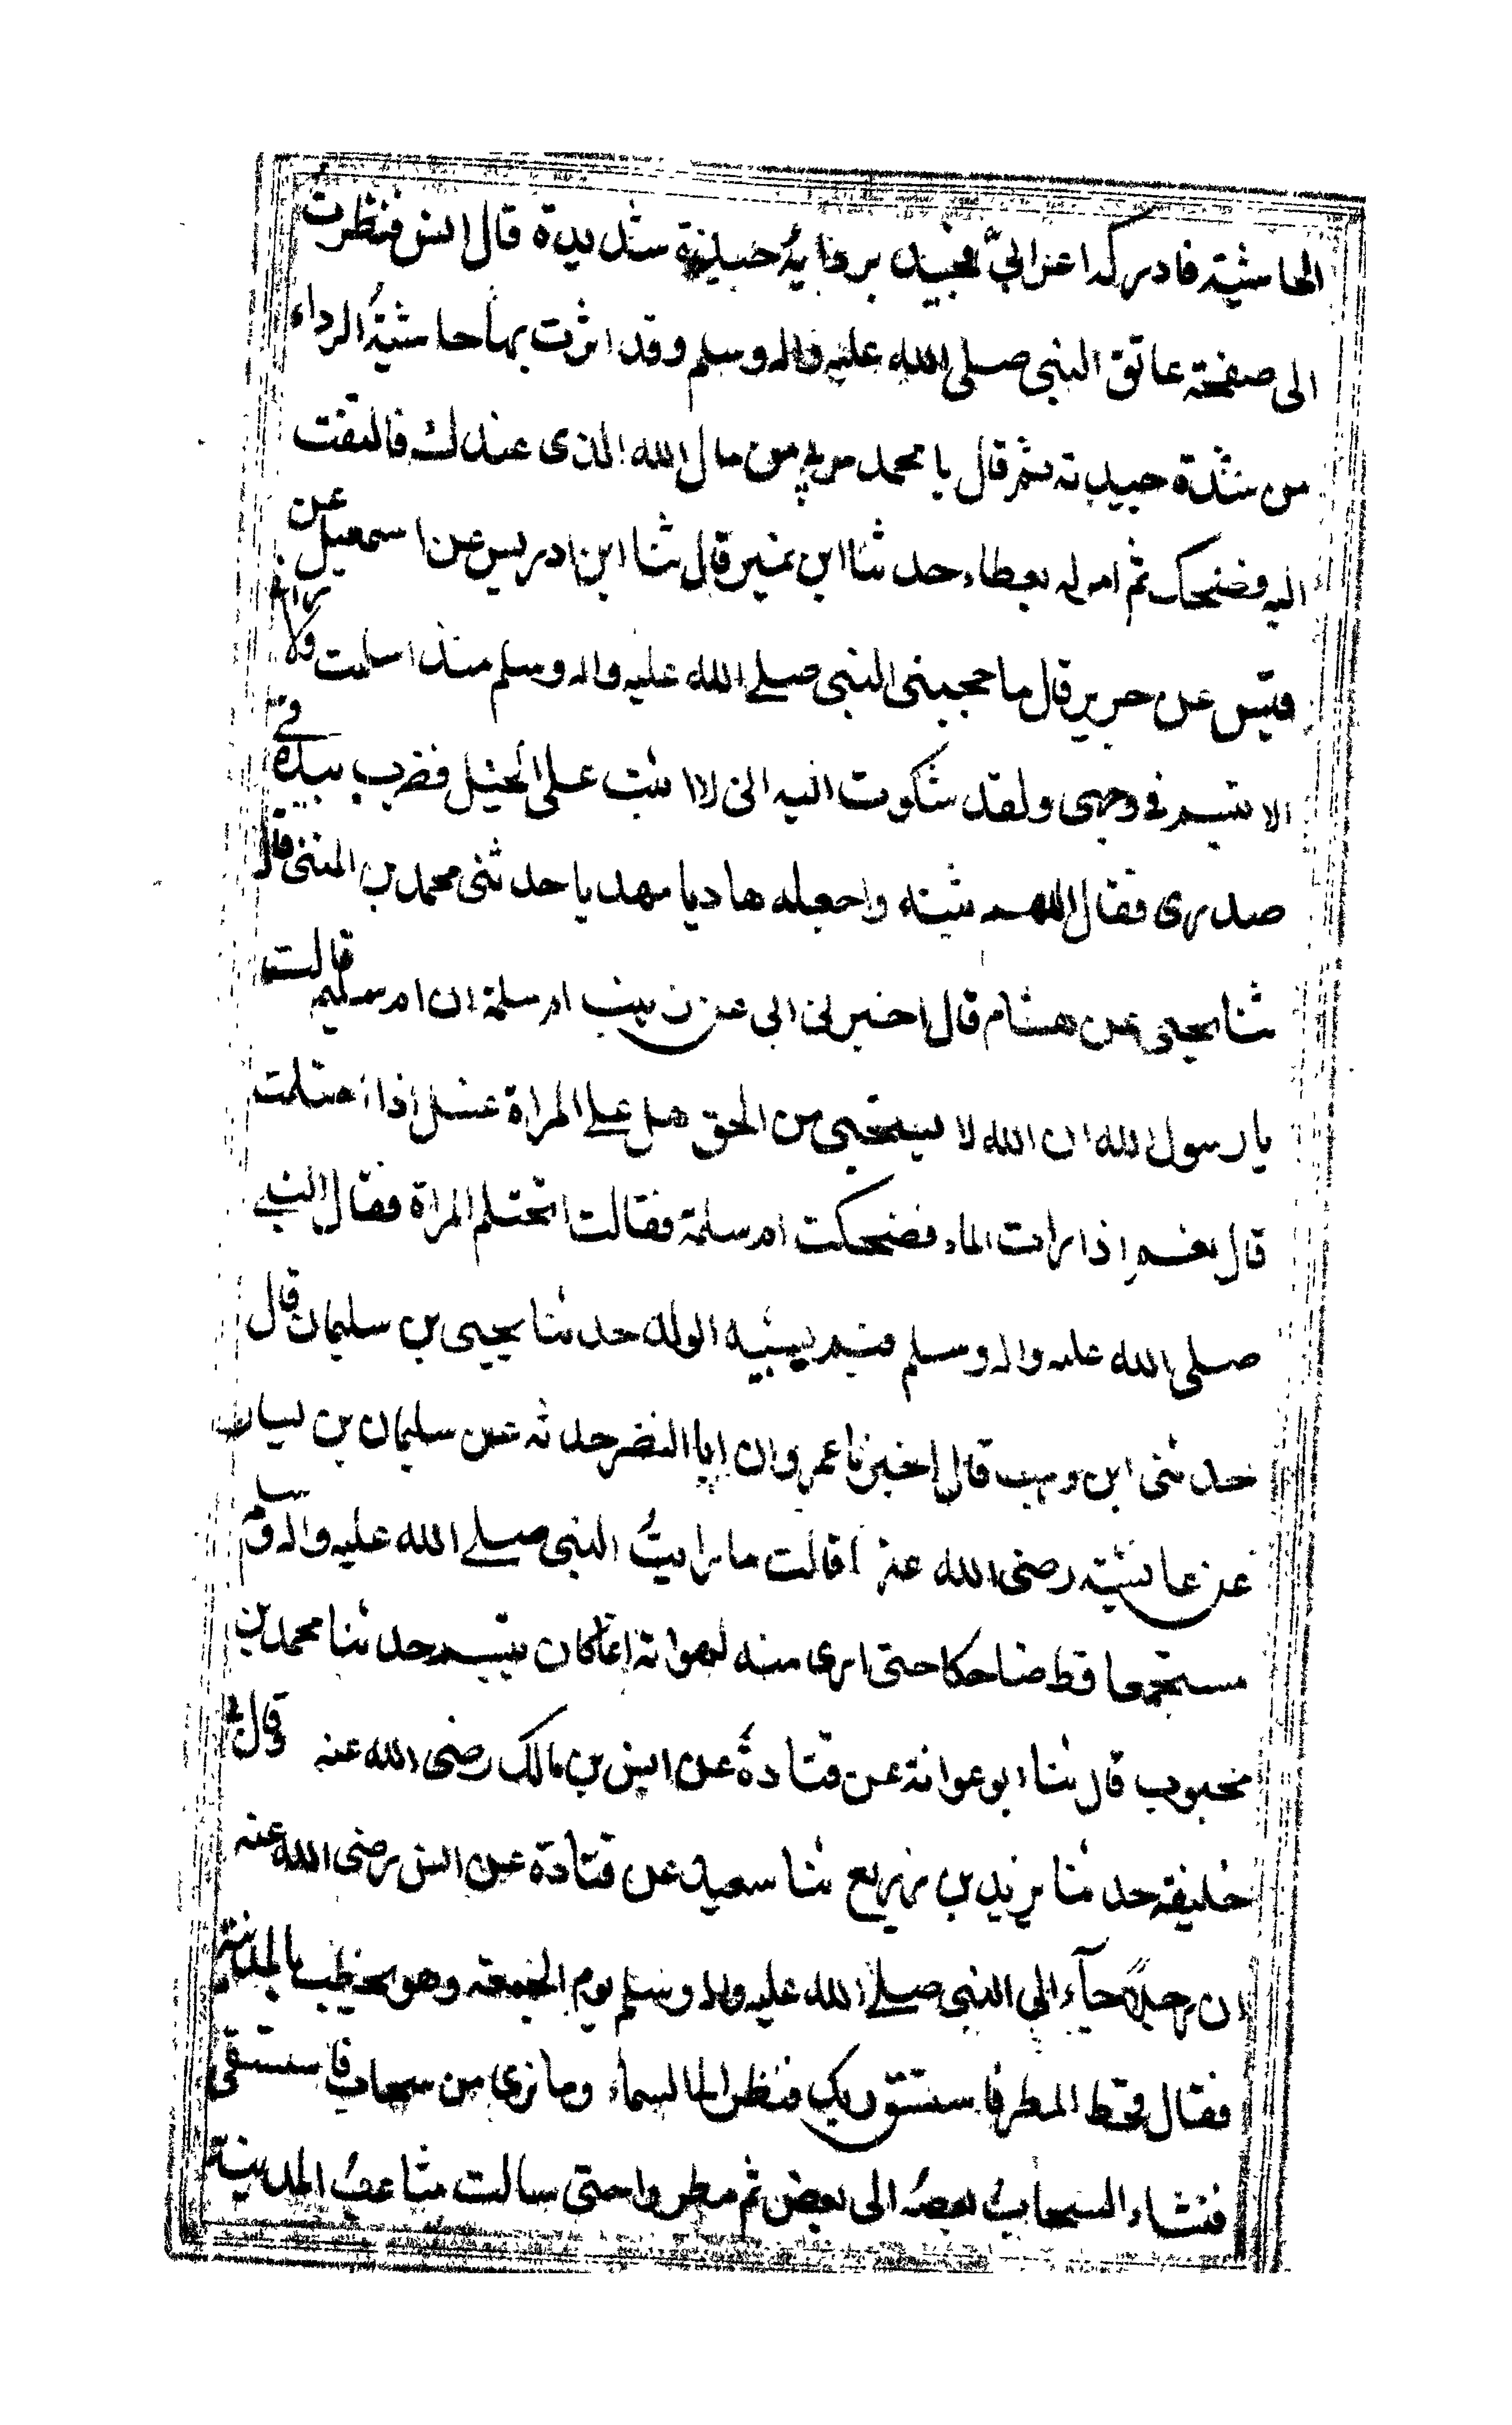 الحاشية فادركه اعرابي فجبذ بردايه جبذة شديدة قال انس فنظرت
الى صفحة عاتق النبي صلى الله عليه واله وسلم وقد اثرت بها حاشية الرداء
من شدة جبذته ثم قال يا محمد مر لي من مال الله الذى عندك فالتفت
اليه فضحك ثم امر له بعطاء حدثنا ابن نمير قال ثنا ابن ادريس عن اسمعيل عن
قيس عن جرير قال ما حجبنى النبي صلى الله عليه واله وسلم منذ اسلمت ولا رانى
الا تبسم فى وجهى ولقد شكوت اليه انى لا اثبت على الخيل فضرب بيده فى
صدرى فقال اللهم ثبته واجعله هاديا مهديا حدثنى محمد بن المثنى قال
ثنا يحيى عن هشام قال اخبرنى ابى عن زينب ام سلمة ان ام سليم قالت
يا رسول الله ان الله لا يستحيى من الحق هل على المراة غسل اذا احتلمت
قال نعم اذا رات الماء فضحكت ام سلمة فقالت اتحتلم المراة فقال النبي
صلى الله عليه واله وسلم فبم يشبه الولد حدثنا يحيى بن سليمان قال
حدثنى ابن وهب قال اخبرنا عمرو ان ابا النضر حدثه عن سليمان بن يسار
عن عائشة رضى الله عنها قالت ما رايت النبي صلى الله عليه واله وسلم
مستجمعا قط ضاحكا حتى ارى منه لهواته انما كان يتبسم حدثنا محمد بن
محبوب قال ثنا ابو عوانة عن قتادة عن انس بن مالك رضى الله عنه وقال لى
خليفة حدثنا يزيد بن زريع ثنا سعيد عن قتادة عن انس رضى الله عنه
ان رجلا جآء الى النبي صلى الله عليه واله وسلم يوم الجمعة وهو يخطب بالمدينة
فقال قحط المطر فاستسق ربك فنظر الى السماء وما نرى من سحاب فاستسقى
فنشاء السحاب بعضه الى بعض ثم مطروا حتى سالت مثاعب المدينة